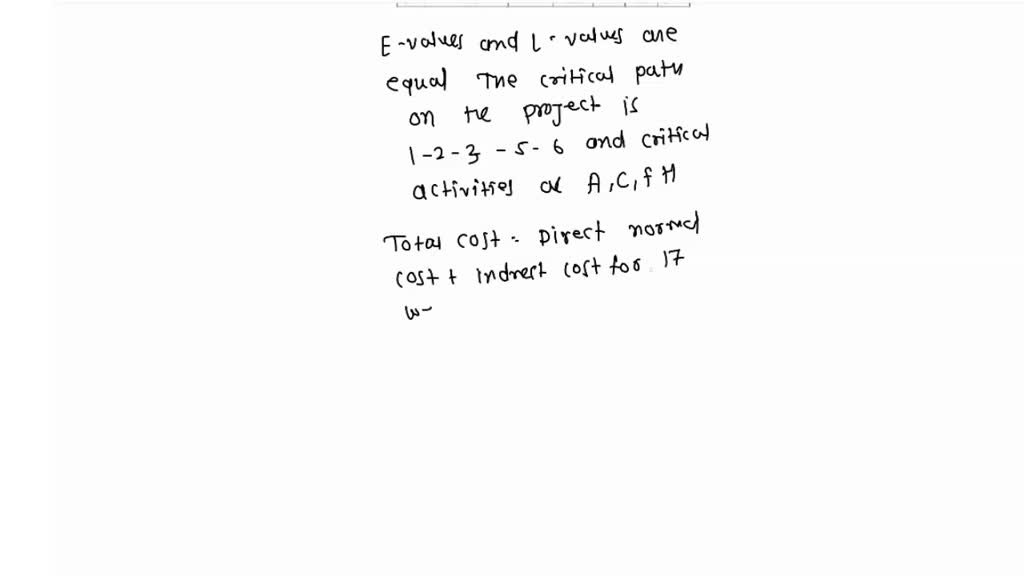 E-values and L-values are
equal The critical path
on the project is
1-2-3 -5-6 and critical
activities are A,C,f H
Total cost = Direct normal
cost + indirect cost for 17
w-